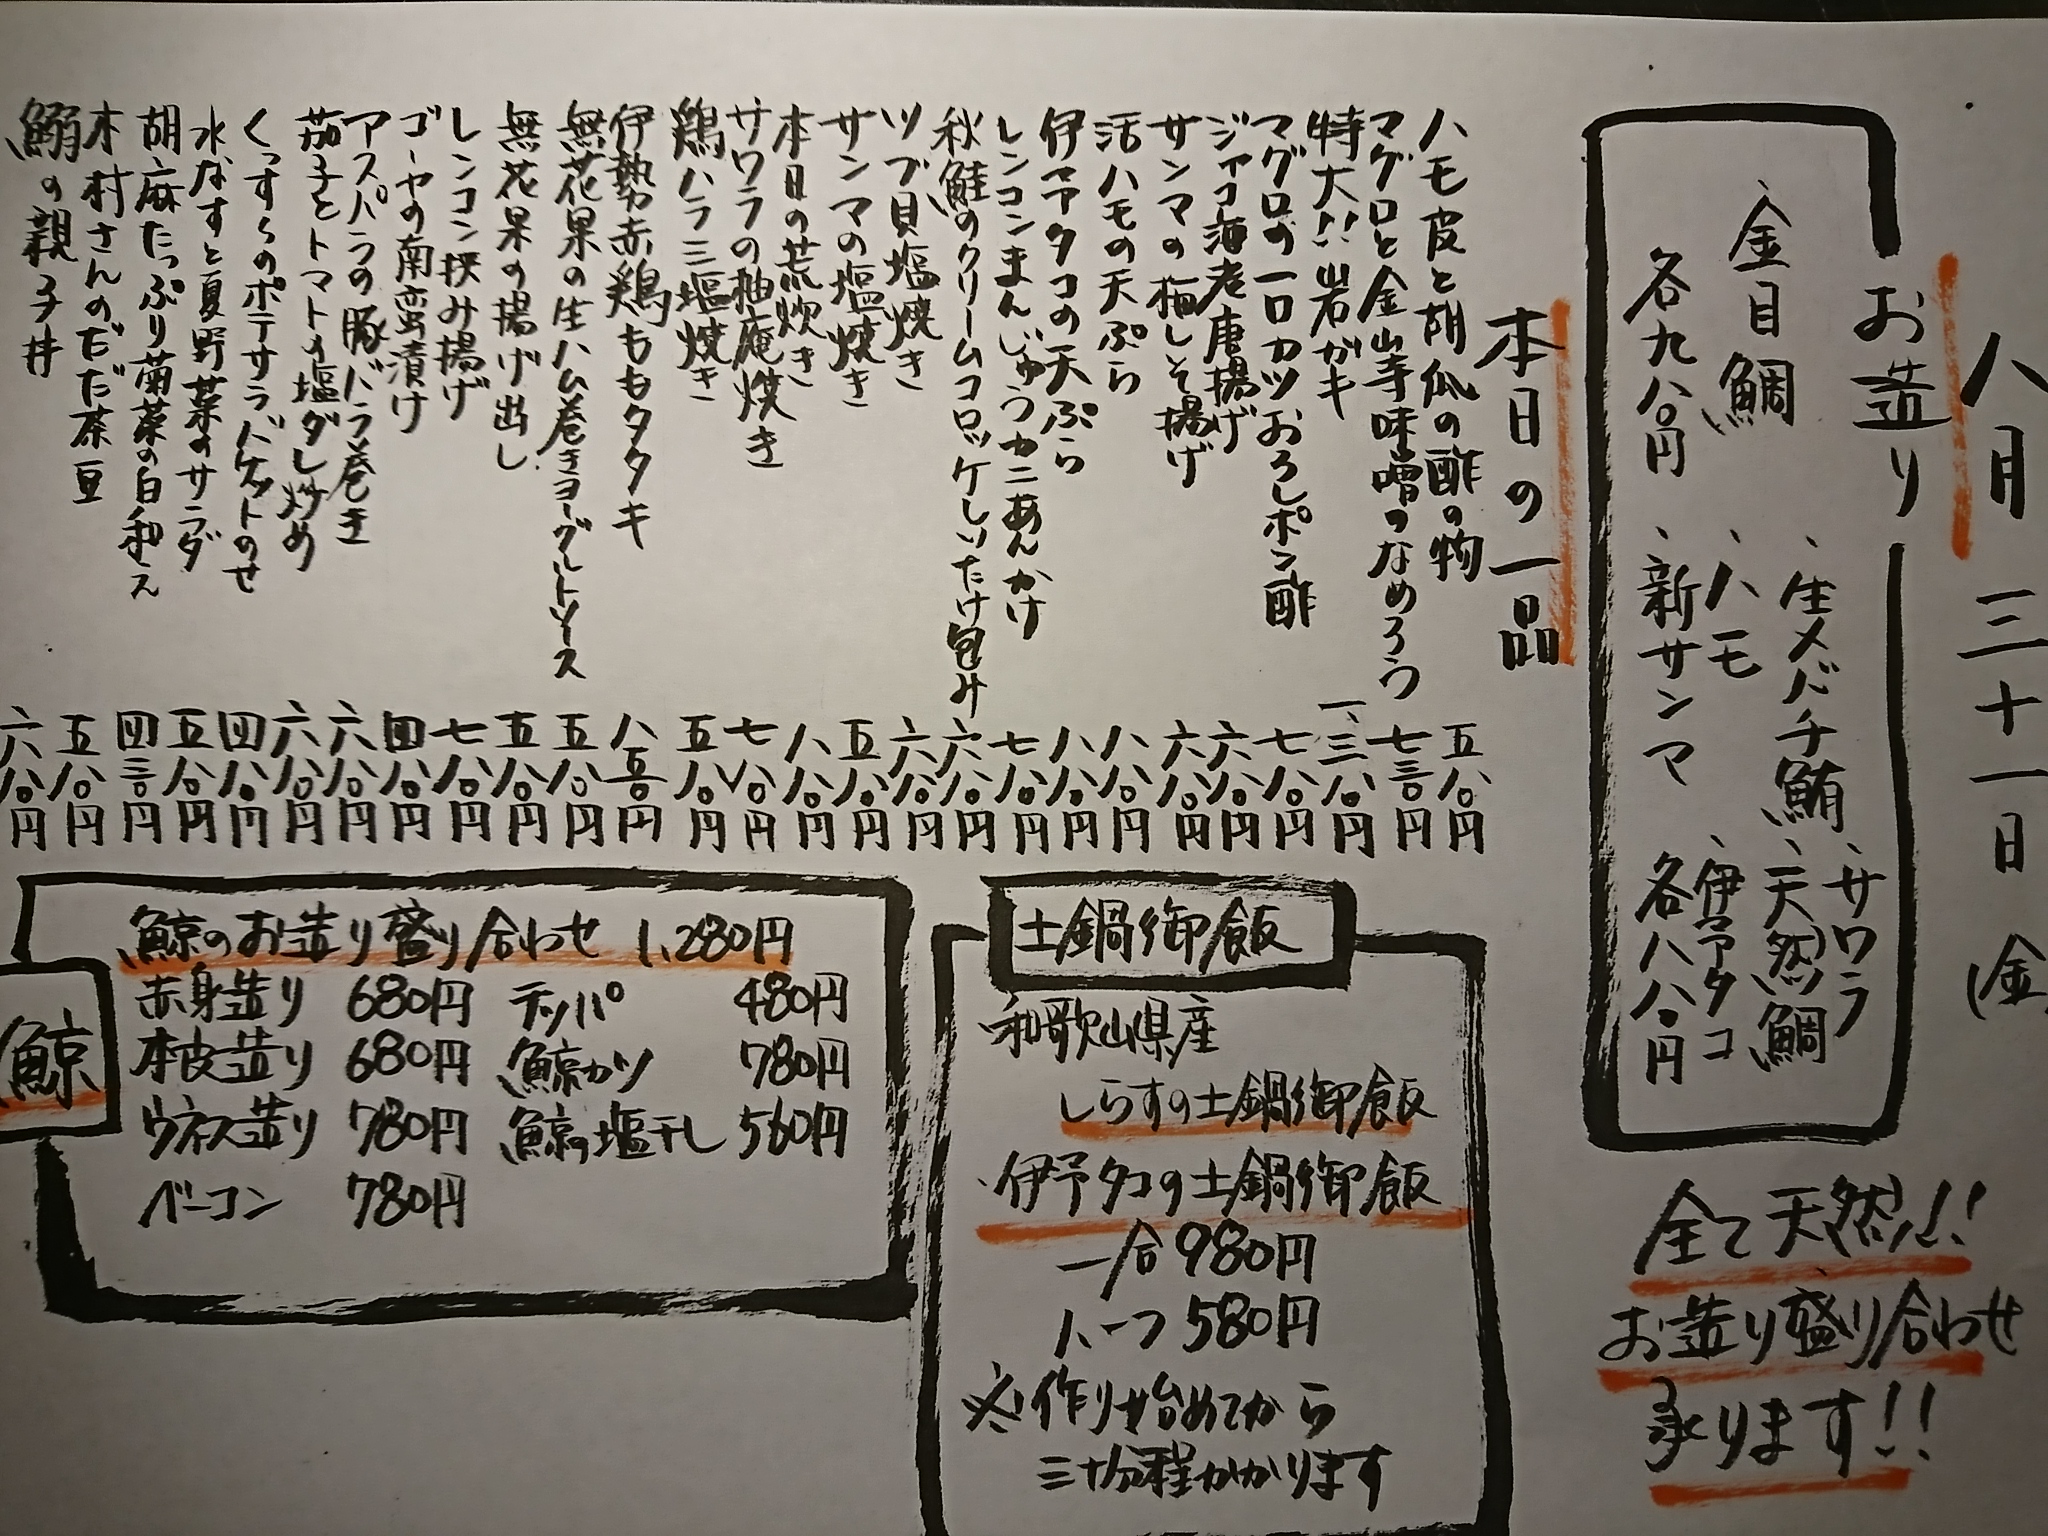 八月三十一日(金
お造り
、サワラ
、生メバチ鮪
、天然鯛
、金目鯛
、ハモ
、伊予タコ
各九八〇円
、新サンマ
各八八〇円
全て天然!!
お造り盛り合わせ
承ります!!
本日の一品
ハモ皮と胡瓜の酢の物 五八〇円
マグロと金山寺味噌のなめろう 七三〇円
特大!!岩ガキ 一、三八〇円
マグロの一口カツおろしポン酢 七八〇円
ジャコ海老唐揚げ 六八〇円
サンマの梅しそ揚げ 六八〇円
活ハモの天ぷら 八八〇円
伊予タコの天ぷら 八八〇円
レンコンまんじゅうカニあんかけ 七八〇円
秋鮭のクリームコロッケしいたけ包み 六八〇円
ツブ貝塩焼き 六八〇円
サンマの塩焼き 五八〇円
本日の荒炊き 八八〇円
サワラの柚庵焼き 七八〇円
鶏ハラミ塩焼き 五八〇円
伊勢赤鶏ももタタキ 八五〇円
無花果の生ハム巻きヨーグルトソース 五八〇円
無花果の揚げ出し 五八〇円
レンコン挟み揚げ 七八〇円
ゴーヤの南蛮漬け 四八〇円
アスパラの豚バラ巻き 六八〇円
茄子とトマトの塩ダレ炒め 六八〇円
くずしのポテサラバケットのせ 四八〇円
水なすと夏野菜のサラダ 五八〇円
胡麻たっぷり菊菜の白和え 四三〇円
木村さんのだだ茶豆 五八〇円
鰯の親子丼 六八〇円
土鍋御飯
和歌山県産
しらすの土鍋御飯
・伊予タコの土鍋御飯
一合980円
ハーフ580円
※作り始めてから
三十分程かかります
鯨
鯨のお造り盛り合わせ 1,280円
赤身造り 680円 テッパ 480円
本皮造り 680円 鯨カツ 780円
ウネス造り 780円 鯨の塩干し 560円
ベーコン 780円